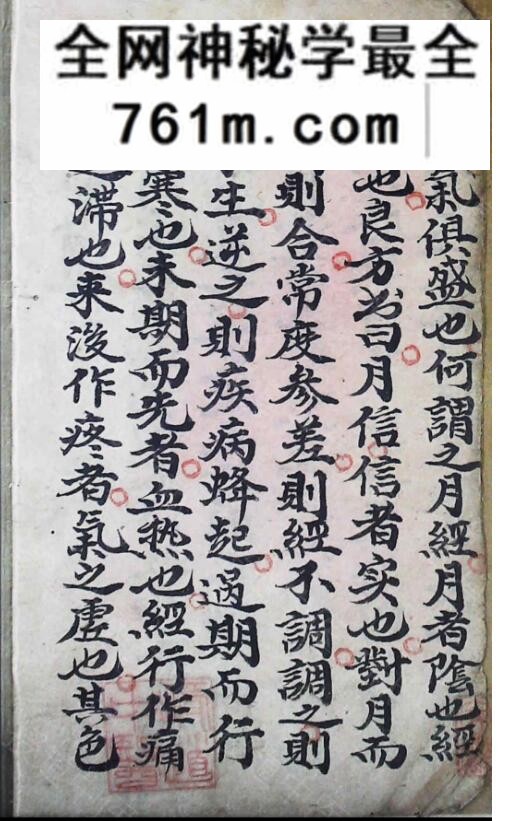 全网神秘学最全
761m.com
氣俱盛也何謂之月經月者陰也經
也良方出曰月信信者实也對月而
則合常度参差則經不調調之則
生逆之則疾病蜂起過期而行
寒也未期而先者血热也經行作痛
滞也来後作疼者氣之虚也其色